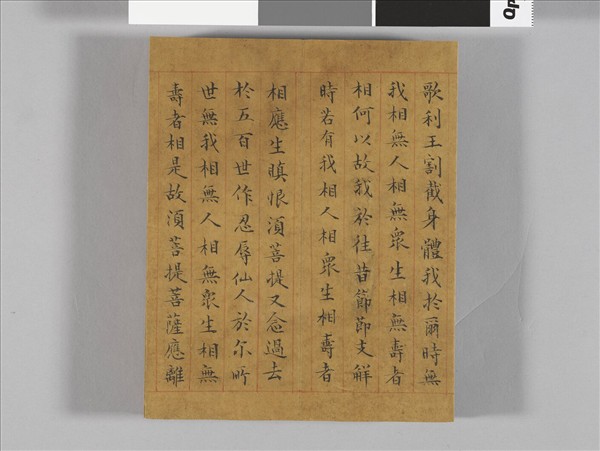 歌利王割截身體我於爾時無
我相無人相無眾生相無壽者
相何以故我於往昔節節支解
時若有我相人相眾生相壽者
相應生瞋恨須菩提又念過去
於五百世作忍辱仙人於尒所
世無我相無人相無眾生相無
壽者相是故須菩提菩薩應離
Op